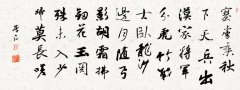 塞虜乘秋
下天兵出
漢家將軍
分虎竹戰
士臥龍沙
邊月隨弓
影胡霜拂
劍花玉關
殊未入少
婦莫長嗟